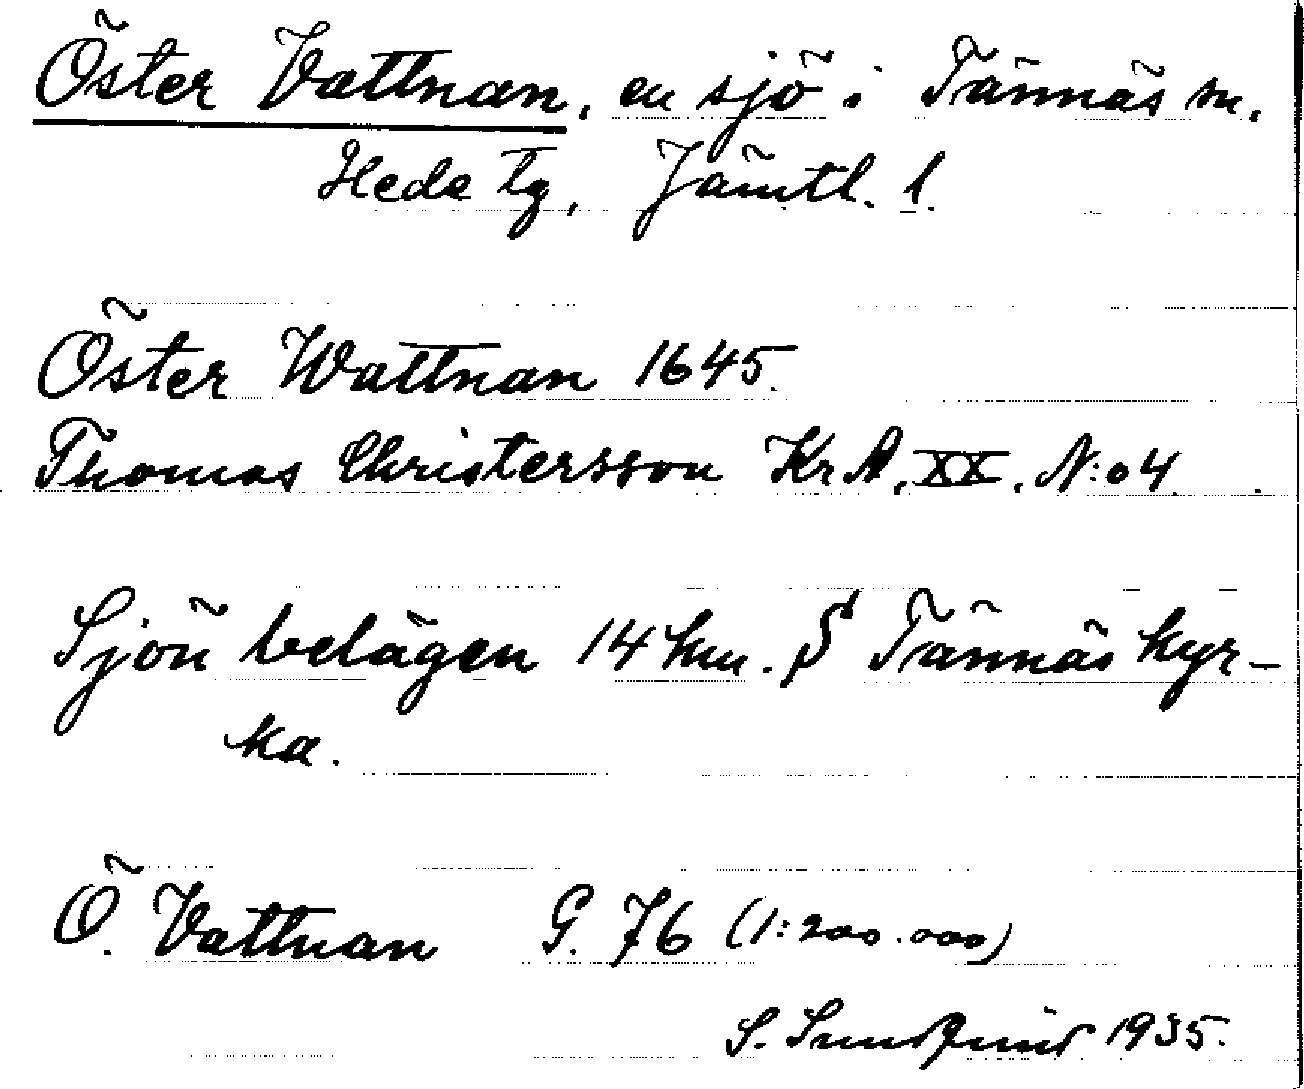 Öster Vattnan, en sjö i Tännäs sn,
Hede tg, Jämtl. l.
Öster Wattnan 1645.
Thomas Christersson KrA, XX, N:o 4.
Sjön belägen 14 km. S Tännäs kyr-
ka.
Ö. Vattnan G. 76 (1:200.000)
S. 1935.